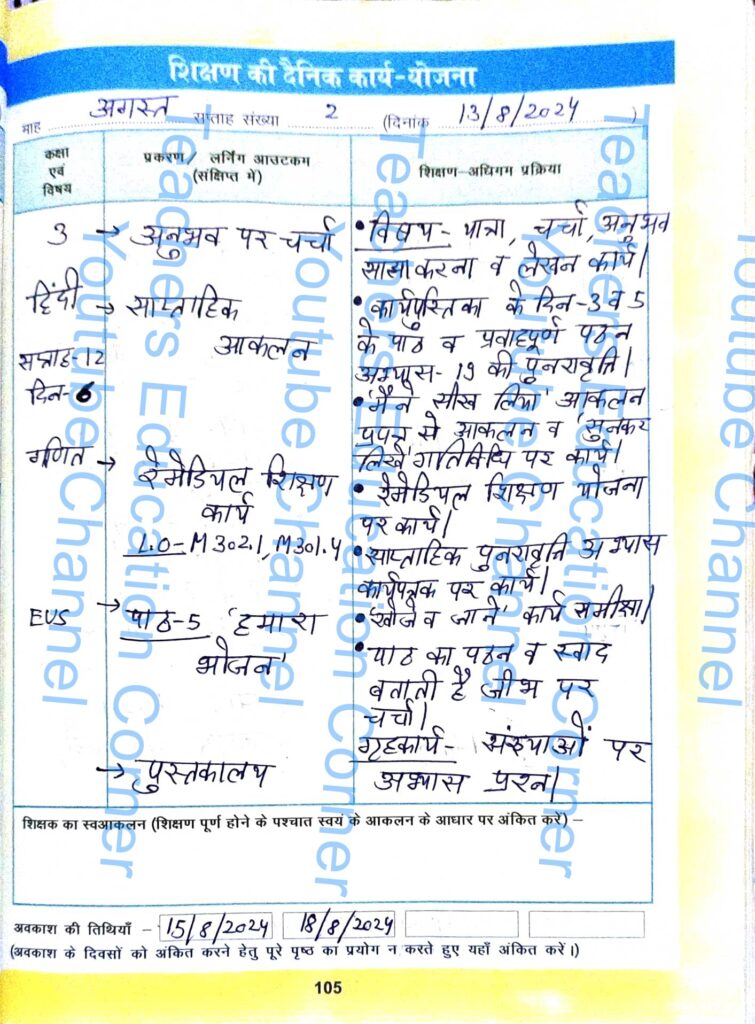 शिक्षण की दैनिक कार्य-योजना
माह अगस्त सप्ताह संख्या 2 (दिनांक 13/8/2024)
कक्षा एवं विषय
प्रकरण/ लर्निंग आउटकम (संक्षिप्त में)
शिक्षण-अधिगम प्रक्रिया
3 → अनुभव पर चर्चा
हिंदी → साप्ताहिक
आकलन
सप्ताह-12
दिन-6
गणित → रेमेडियल शिक्षण
कार्य
L.O- M302.1, M301.4
EVS → पाठ-5 'हमारा
भोजन'
→ पुस्तकालय
• विषय- यात्रा, चर्चा, अनुभव
साझा करना व लेखन कार्य।
• कार्यपुस्तिका के दिन-3 व 5
के पाठ व प्रवाहपूर्ण पठन
अभ्यास-19 की पुनरावृत्ति।
• 'मैंने सीख लिया' आकलन
प्रपत्र से आकलन व 'सुनकर
लिखें' गतिविधि पर कार्य।
• रेमेडियल शिक्षण योजना
पर कार्य।
• साप्ताहिक पुनरावृत्ति अभ्यास
कार्यपत्रक पर कार्य।
• 'खोजें व जानें' कार्य समीक्षा।
• पाठ का पठन व स्वाद
बताती है जीभ पर
चर्चा।
गृहकार्य- संख्याओं पर
अभ्यास प्रश्न।
शिक्षक का स्वआकलन (शिक्षण पूर्ण होने के पश्चात स्वयं के आकलन के आधार पर अंकित करें) –
अवकाश की तिथियाँ – 15/8/2024 18/8/2024
(अवकाश के दिवसों को अंकित करने हेतु पूरे पृष्ठ का प्रयोग न करते हुए यहाँ अंकित करें।)
105
Teachers Education Corner
Youtube Channel
Teachers Education Corner
Youtube Channel
Teachers Education Corner
Youtube Channel